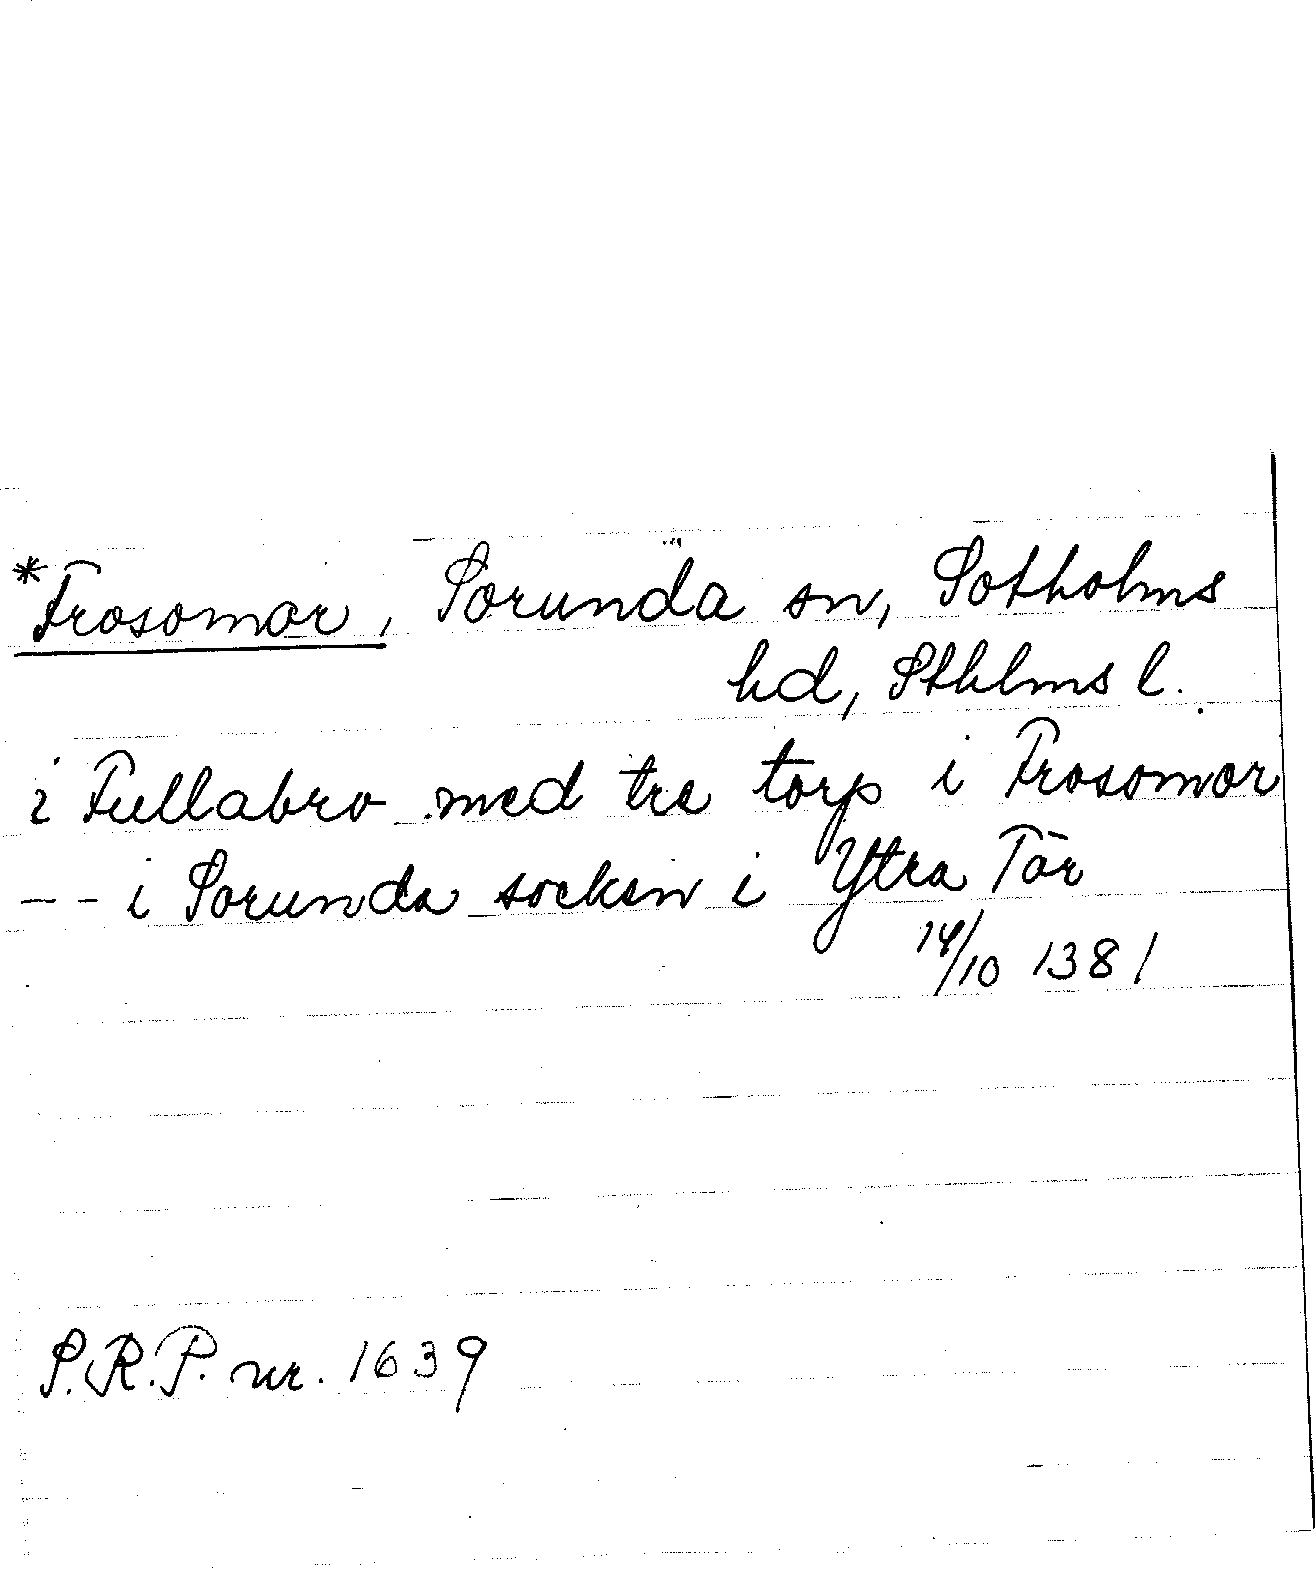 *Frosomar, Sorunda sn, Sotholms
hd, Sthlms l.
i Fullabro med tre torp i Frosomar
-- i Sorunda socken i Ytra Tör
14/10 1381
S.R.P. nr. 1639